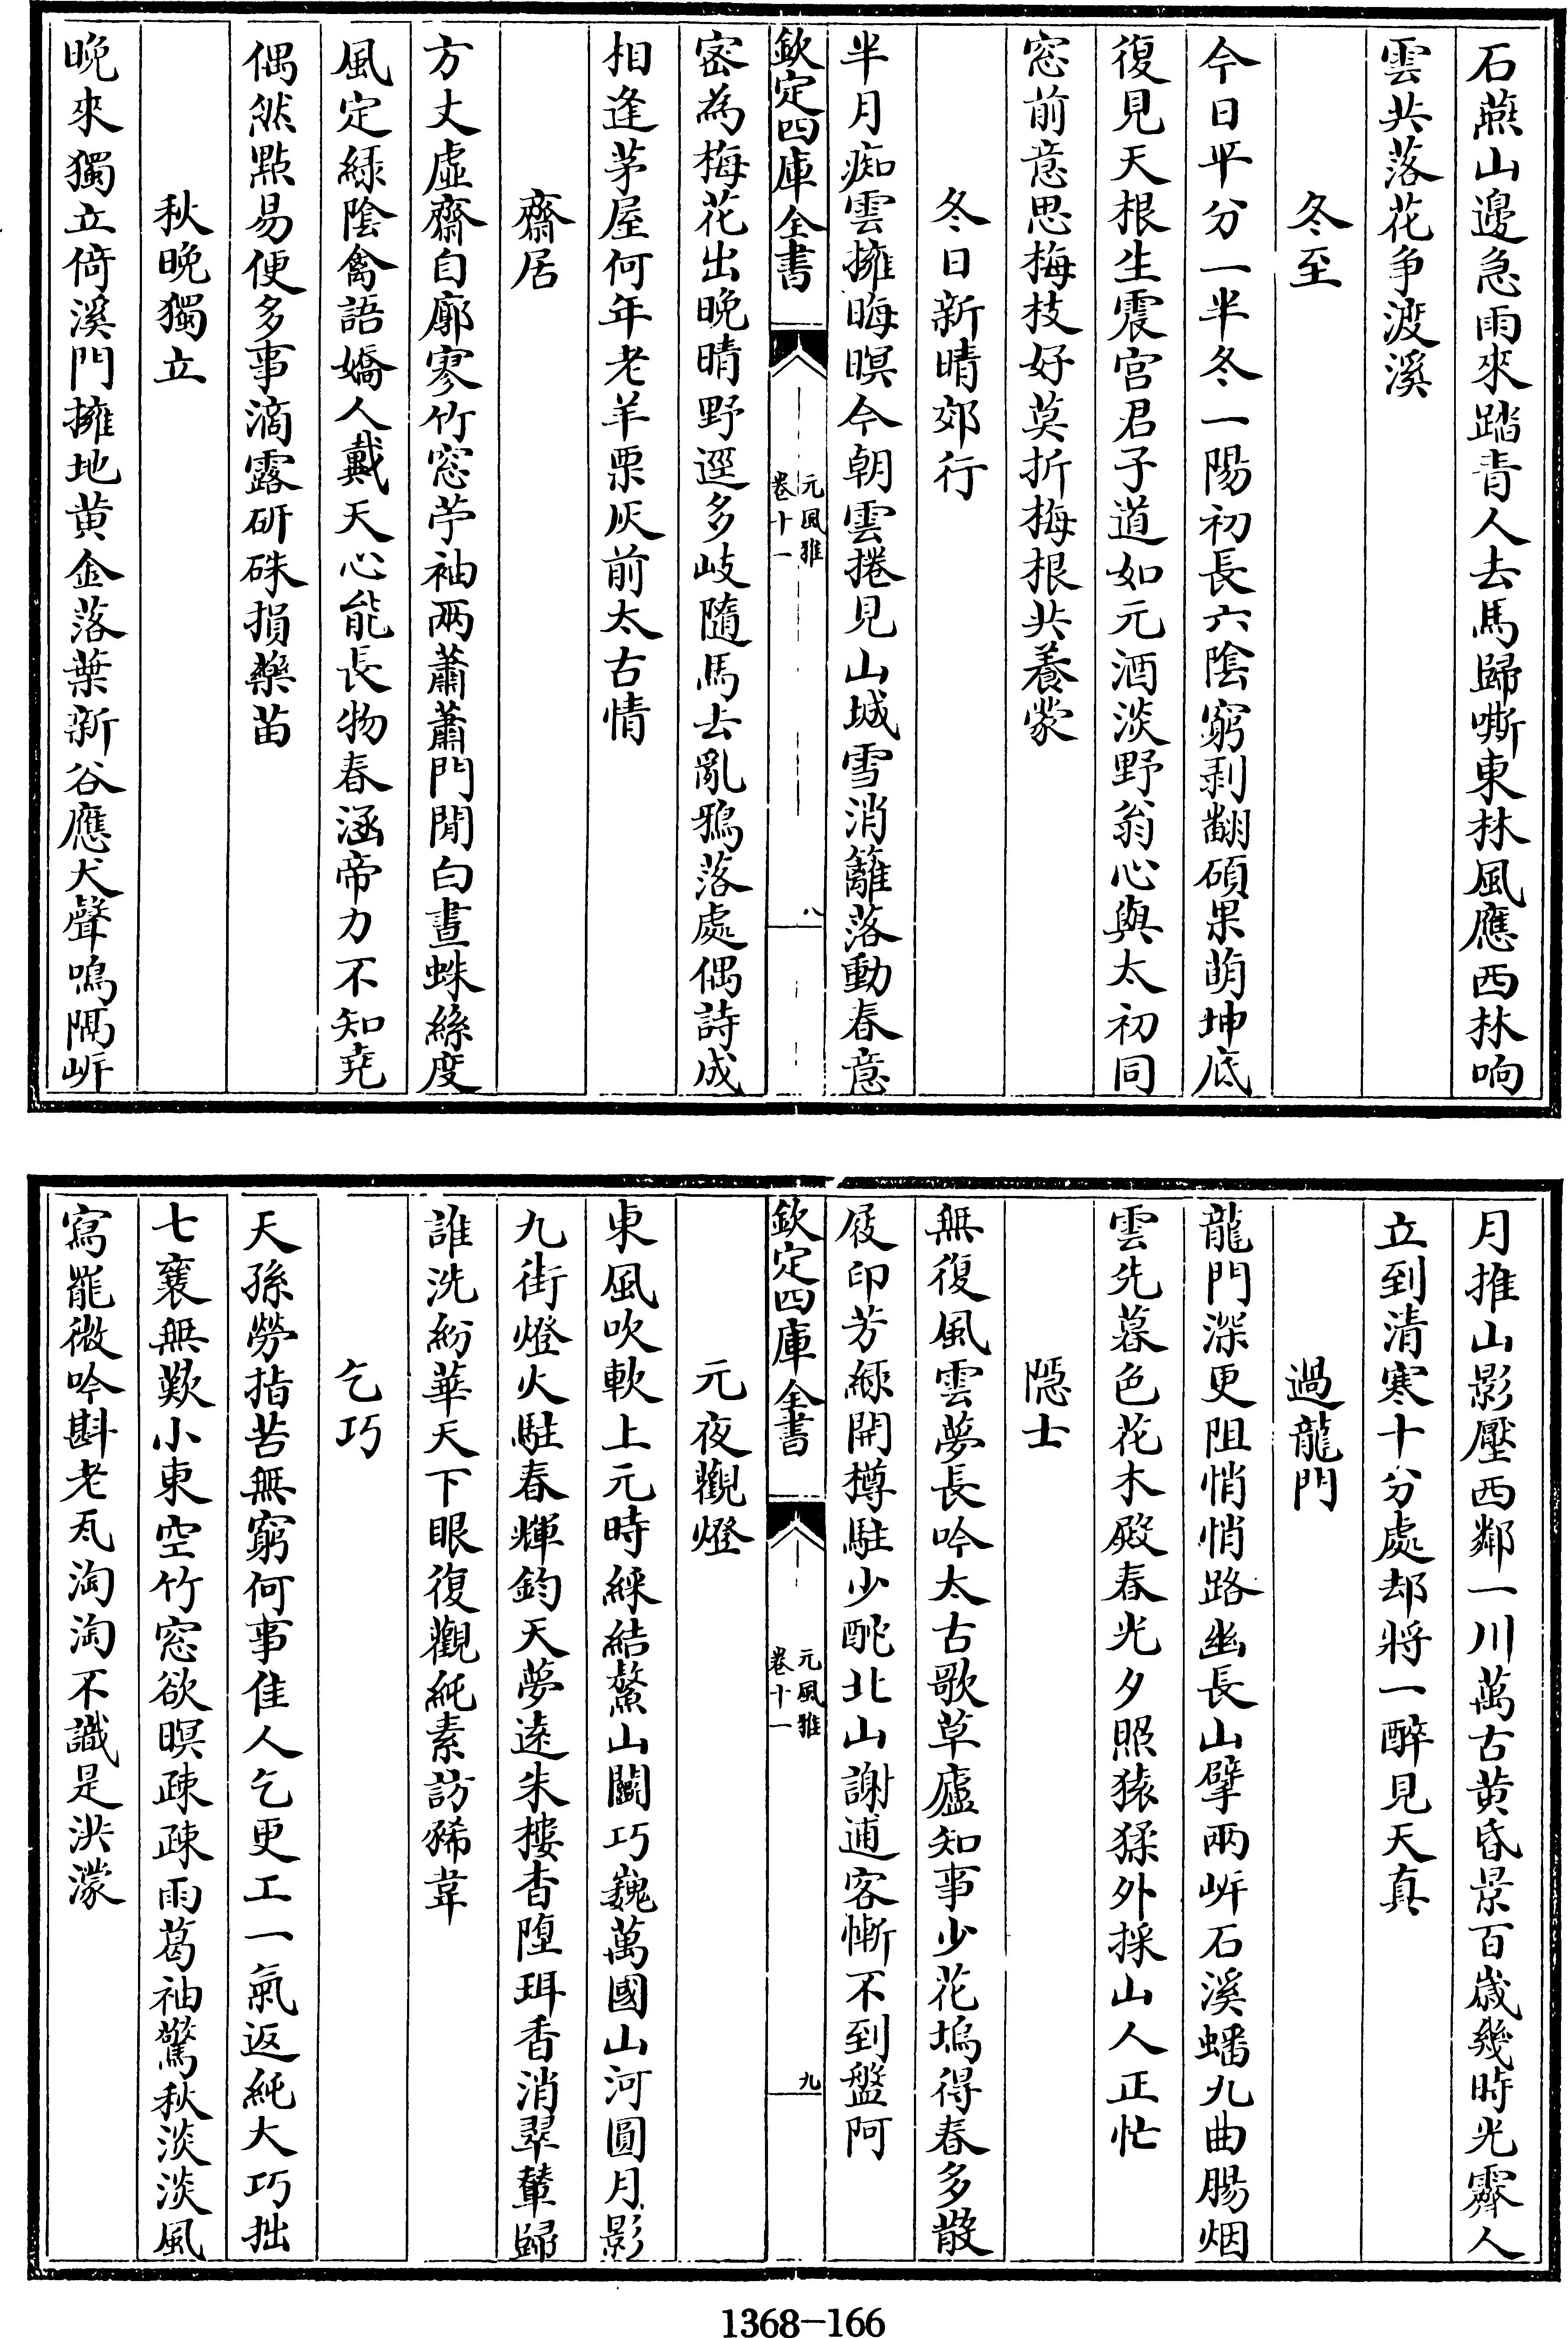 石燕山邊急雨來踏青人去馬歸嘶東林風應西林响
雲共落花争渡溪
冬至
今日平分一半冬一陽初長六陰窮剥翻碩果萌坤底
復見天根生震宫君子道如元酒淡野翁心與太初同
窓前意思梅枝好莫折梅根共養蒙
冬日新晴郊行
半月痴雲擁晦暝今朝雲捲見山城雪消籬落動春意
欽定四庫全書
元風雅
卷十一
八
密為梅花出晚晴野逕多岐隨馬去亂鴉落處偶詩成
相逢茅屋何年老羊栗灰前太古情
齋居
方丈虚齋自廓寥竹窓苧袖兩蕭蕭門閒白晝蛛絲度
風定緑陰禽語嬌人戴天心能長物春涵帝力不知堯
偶然點易便多事滴露研硃損藥苗
秋晚獨立
晚來獨立倚溪門擁地黄金落葉新谷應犬聲鳴隅㟁
月推山影壓西鄰一川萬古黄昏景百歳幾時光霽人
立到清寒十分處却將一醉見天真
過龍門
龍門深更阻悄悄路幽長山擘兩㟁石溪蟠九曲腸烟
雲先暮色花木殿春光夕照猿猱外採山人正忙
隠士
無復風雲夢長吟太古歌草廬知事少花塢得春多散
屐印芳緑開樽駐少酡北山謝逋客慚不到盤阿
欽定四庫全書
元風雅
卷十一
九
元夜觀燈
東風吹軟上元時綵結鰲山鬭巧巍萬國山河圓月影
九街燈火駐春輝鈞天夢逺朱樓杳墮珥香消翠輦歸
誰洗紛華天下眼復觀純素訪豨韋
乞巧
天孫勞指苦無窮何事佳人乞更工一氣返純大巧拙
七襄無歎小東空竹窓欲暝疎疎雨葛袖驚秋淡淡風
寫罷微吟斟老瓦淘淘不識是洪濛
1368-166